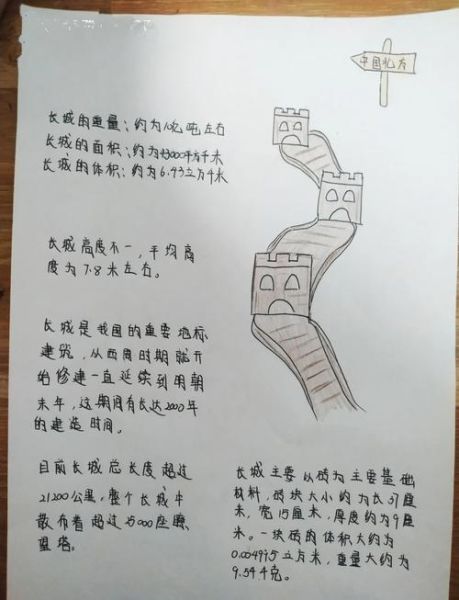 中国亿万
长城的重量：约为10亿吨左右
长城的面积：约为43000平方千米
长城的体积：约为6.43立方千米
长城高度不一，平均高
度为7.8米左右。
长城是我国的重要地标
建筑，从西周时期就开
始修建一直延续到明朝
末年，这期间有长达2000年
的建造时间。
目前长城总长度超过
21200公里，整个长城中
散布着超过25000座瞭
望塔。
长城主要以砖为主要基础
材料，砖块大小约为长37厘
米，宽15厘米，厚度约为9厘
米。一块砖的体积大约为
0.004995立方米，重量大约为
9.54千克。